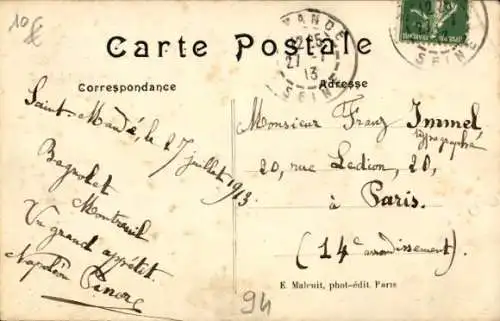 10€
MANDÉ
12 25
27 - 7
13
SEINE
Carte Postale
Correspondance
Adresse
Saint-Mandé, le 27 juillet 1913.
Bagnolet
Montreuil
Un grand appétit.
Napoléon
Monsieur Franz Immel
typographe
20, rue Ledion, 20,
à
Paris.
(14e arrondissement).
E. Malcuit, phot-édit. Paris
94